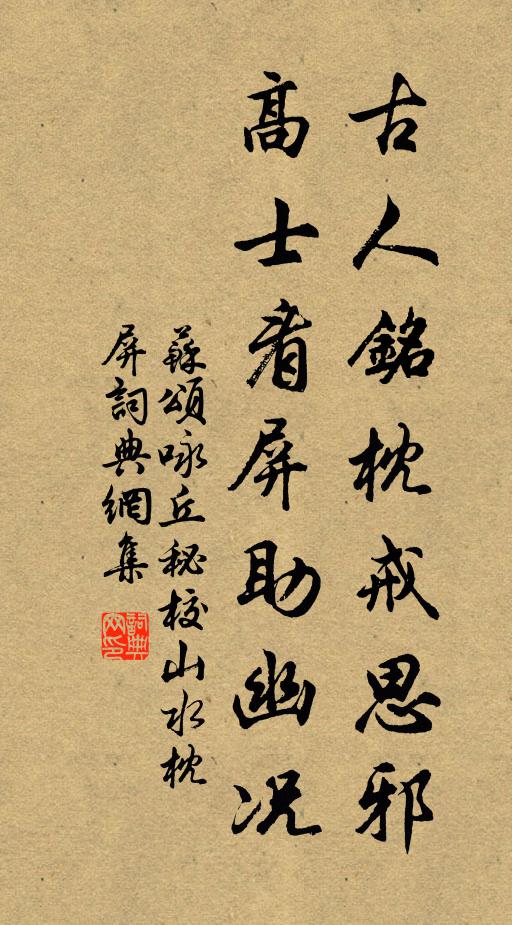 古人銘枕戒思邪
高士看屏助幽况
蘇頌咏丘秘校山水枕
屏詞典網集
詞典
网印